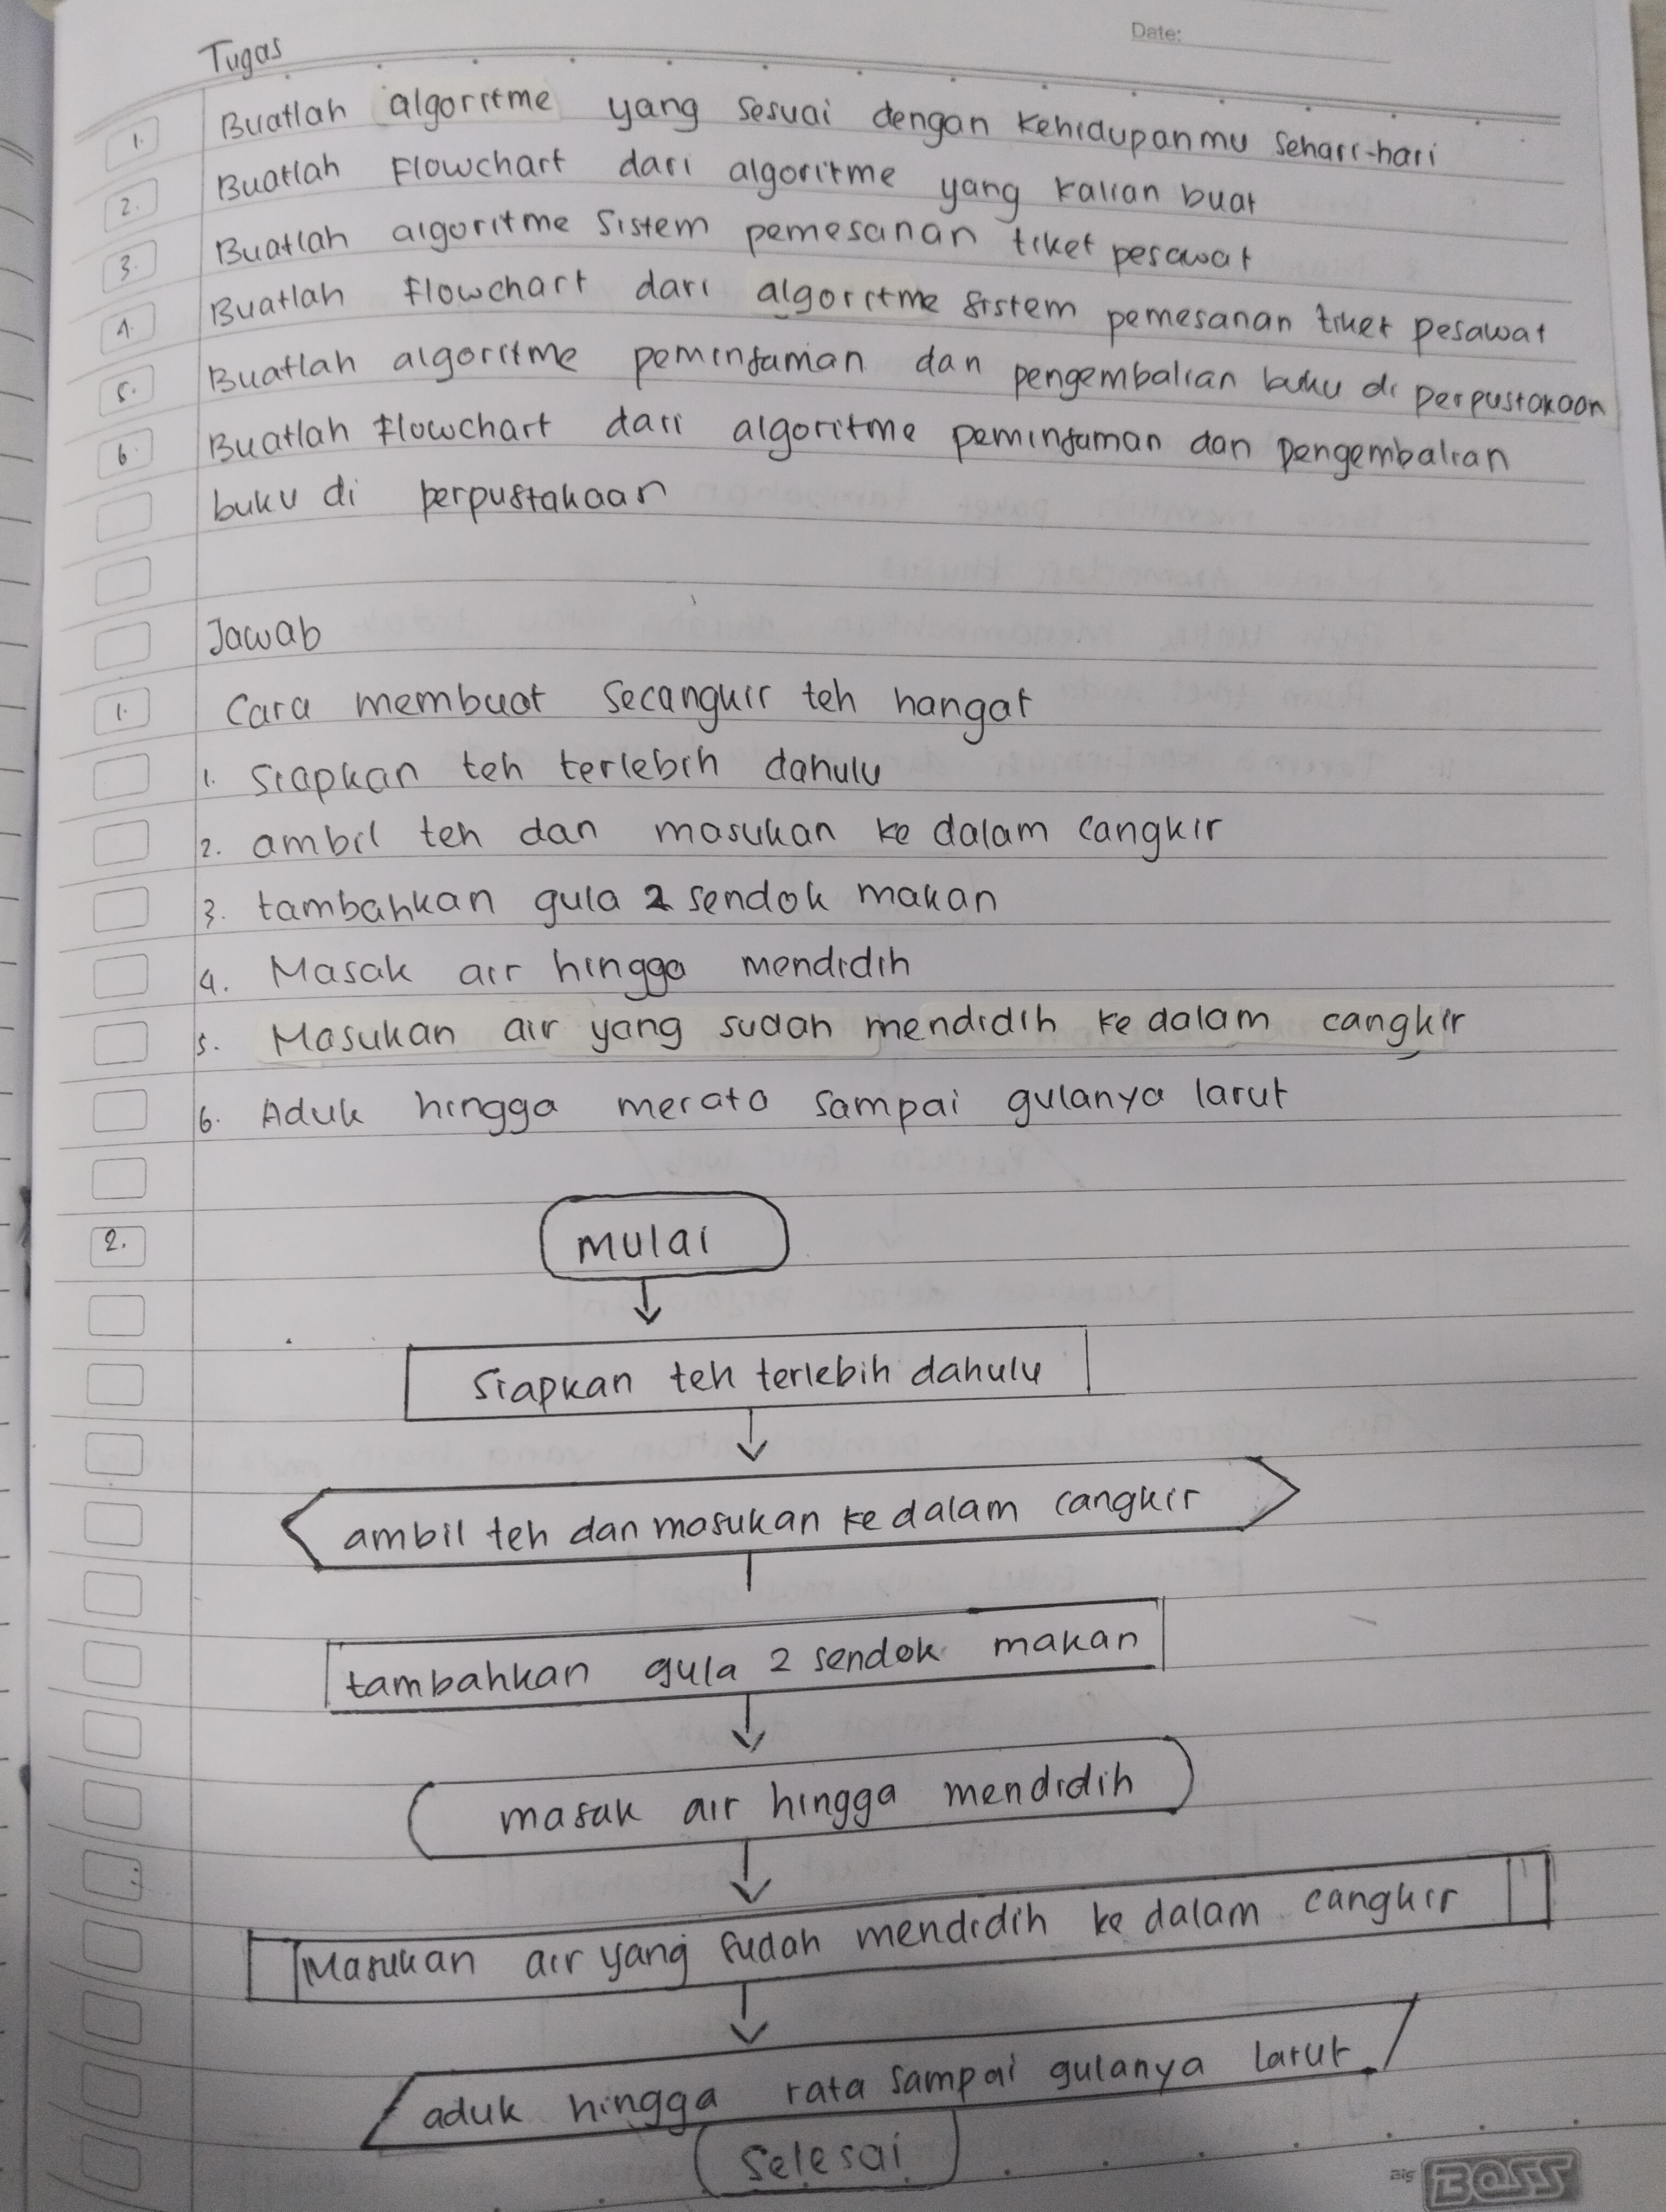 Date:
Tugas
1. Buatlah algoritme yang sesuai dengan kehidupanmu sehari-hari
2. Buatlah Flowchart dari algoritme yang kalian buat
3. Buatlah algoritme sistem pemesanan tiket pesawat
4. Buatlah flowchart dari algoritme sistem pemesanan tiket pesawat
5. Buatlah algoritme peminjaman dan pengembalian buku di perpustakaan
6. Buatlah flowchart dari algoritme peminjaman dan pengembalian
buku di perpustakaan
Jawab
1. Cara membuat secangkir teh hangat
1. Siapkan teh terlebih dahulu
2. ambil teh dan masukan ke dalam cangkir
3. tambahkan gula 2 sendok makan
4. Masak air hingga mendidih
5. Masukan air yang sudah mendidih ke dalam cangkir
6. Aduk hingga merata sampai gulanya larut
2. mulai
Siapkan teh terlebih dahulu
ambil teh dan masukan ke dalam cangkir
tambahkan gula 2 sendok makan
masak air hingga mendidih
Masukan air yang sudah mendidih ke dalam cangkir
aduk hingga rata sampai gulanya larut
Selesai
Big BOSS